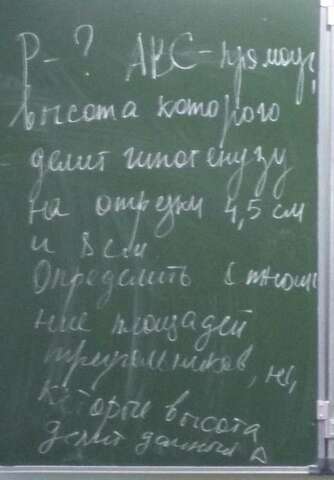 P - ? ABC - прямоуг,
высота которого
делит гипотенузу
на отрезки 4,5 см
и 8 см
Определить отноше
ние площадей
треугольников, на,
которые высота
делит данный Δ